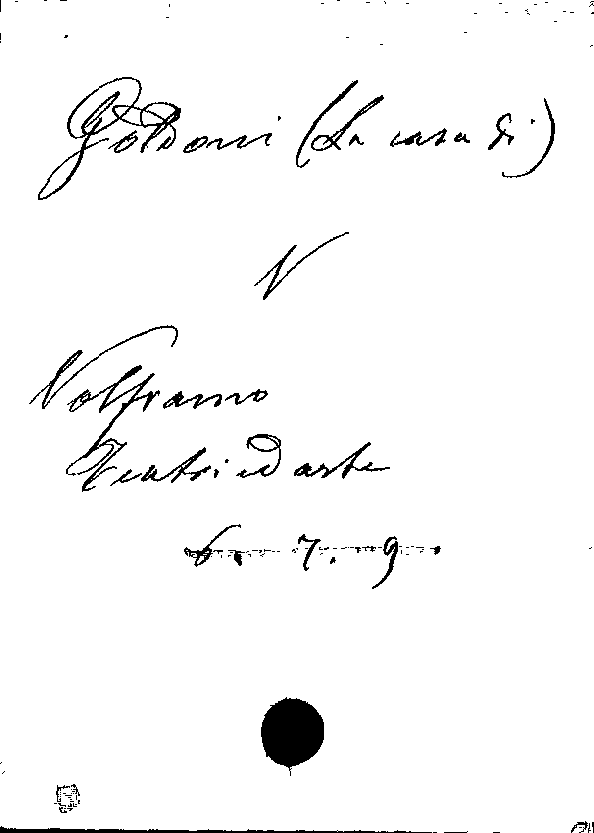 Goldoni (La casa di)
V
Volframo
Teatri ed arte
6. 7. 9.